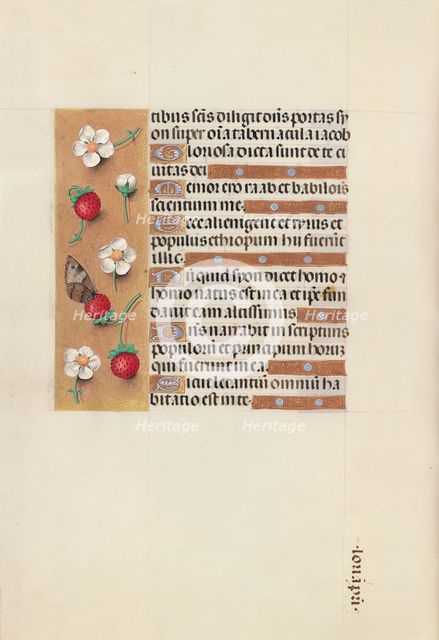 tibus scīs diligit dn̄s portas sy
on super om̄a tabernacula iacob
Gloriosa dicta sunt de te ci
uitas dei
Memor ero raab et babilois
scientium me
Ecce alienigene et tyrus et
populus ethiopum hij fuerūt
illic
Nūquid syon dicet homo ⁊
homo natus est in ea et ip̄e fun
dauit eam altissimus
Dn̄s narrabit in scripturis
populorū et principum horūz
qui fuerunt in ea
Sicut letantiū omniū̄ ha
bitatio est in te
Heritage
Heritage
Heritage
Heritage
Heritage
Heritage